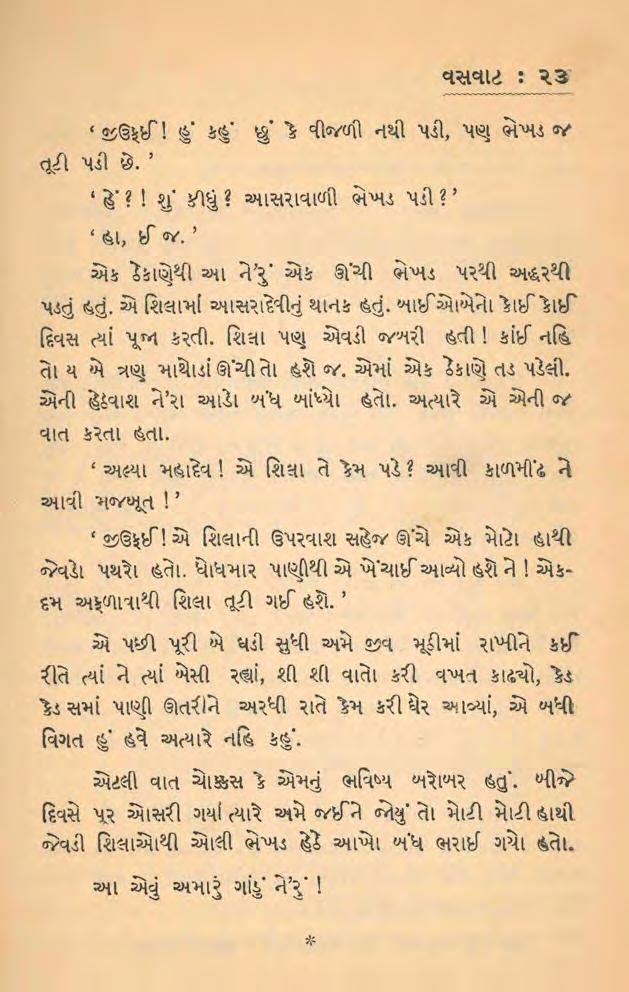 વસવાટ : ૨૩
‘ જીઉકઈ! હું કહું છું કે વીજળી નથી પડી, પણ ભેખડ જ
તૂટી પડી છે. ’
‘ હેં ? ! શું કીધું ? આસરાવાળી ભેખડ પડી ? ’
‘ હા, ઈ જ. ’
એક ઠેકાણેથી આ ને’રું એક ઊંચી ભેખડ પરથી અદ્ધરથી
પડતું હતું. એ શિલામાં આસરાદેવીનું થાનક હતું. બાઈઓએનો કોઈ કોઈ
દિવસ ત્યાં પૂજા કરતી. શિલા પણ એવડી જબરી હતી ! કાંઈ નહિ
તો ય બે ત્રણ માથોડાં ઊંચી તો હશે જ. એમાં એક ઠેકાણે તડ પડેલી.
એની હેઠવાશ ને’રા આડો બંધ બાંધ્યો હતો. અત્યારે એ એની જ
વાત કરતા હતા.
‘ અલ્યા મહાદેવ ! એ શિલા તે કેમ પડે ? આવી કાળમીંઢ ને
આવી મજબૂત ! ’
‘ જીઉકઈ! એ શિલાની ઉપરવાશ સહેજ ઊંચે એક મોટો હાથી
જેવડો પથરો હતો. ધોધમાર પાણીથી એ ખેંચાઈ આવ્યો હશે ને ! એક-
દમ અફળાવાથી શિલા તૂટી ગઈ હશે. ’
એ પછી પૂરી બે ઘડી સુધી અમે જીવ મૂઠીમાં રાખીને કઈ
રીતે ત્યાં ને ત્યાં બેસી રહ્યાં, શી શી વાતો કરી વખત કાઢ્યો, કેડ
કેડ સમાં પાણી ઊતરીને અરધી રાતે કેમ કરી ઘેર આવ્યાં, એ બધી
વિગત હું હવે અત્યારે નહિ કહું.
એટલી વાત ચોક્કસ કે એમનું ભવિષ્ય બરોબર હતું. બીજે
દિવસે પૂર ઓસરી ગયાં ત્યારે અમે જઈને જોયું તો મોટી મોટી હાથી
જેવડી શિલાઓથી ઓલી ભેખડ હેઠે આખો બંધ ભરાઈ ગયો હતો.
આ એવું અમારું ગાંડું ને’રું !
*